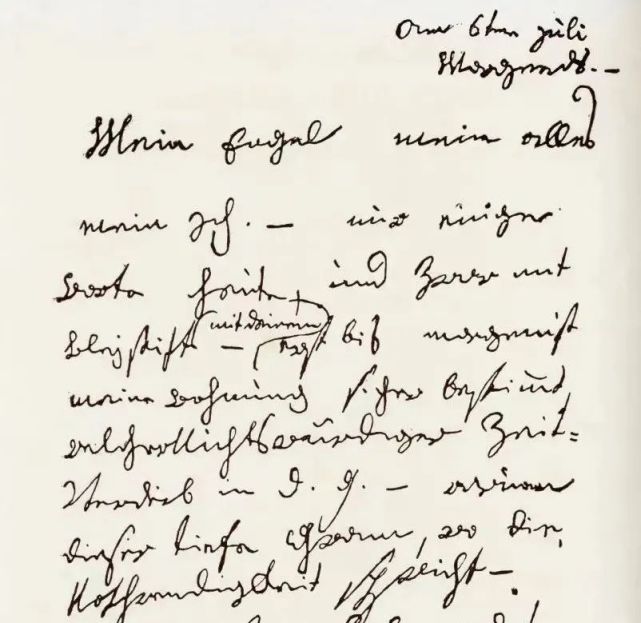 am 6ten Juli
Morgends. –
Mein Engel mein alles
mein Ich. – nur einige
Worte heute, und zwar mit
Bleÿstift – (mit deinem) erst bis morgen ist
meine Wohnung sicher bestimmt,
welcher Nichtswürdiger Zeit=
Verderb in d. g. – warum
dieser tiefe Gram, wo die
Nothwendigkeit spricht –